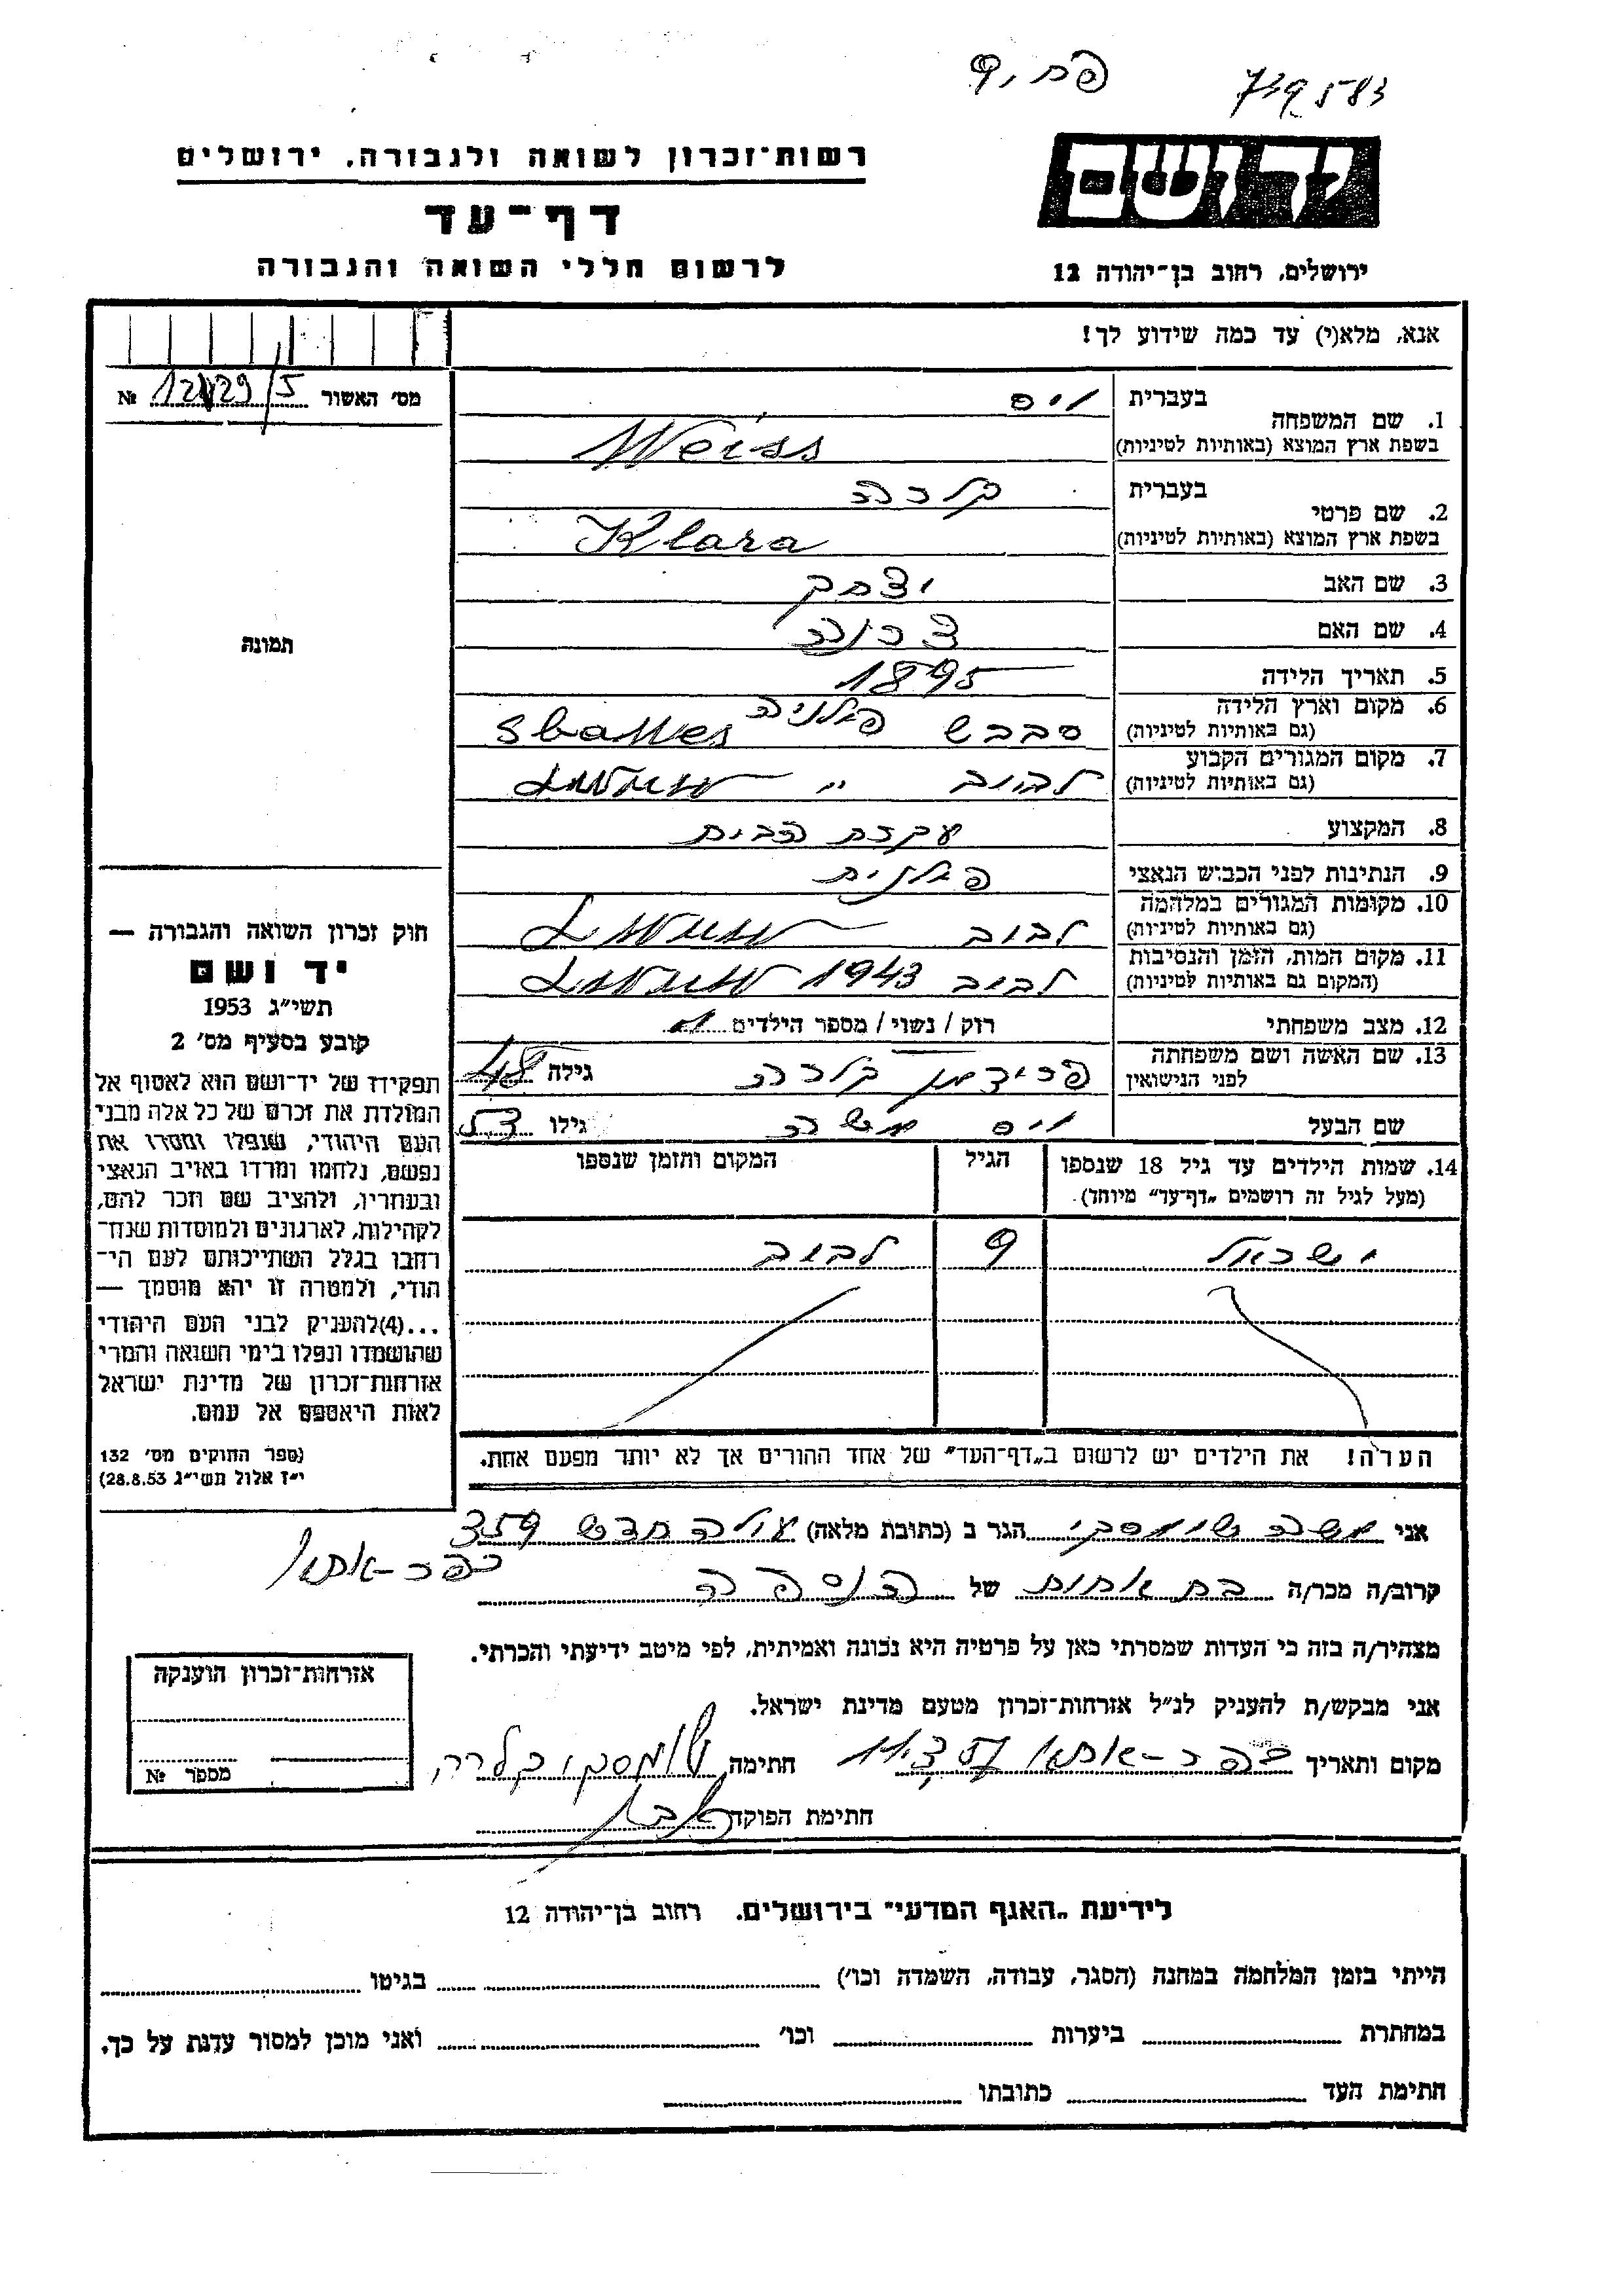 739583
יד ושם
ירושלים, רחוב בן־יהודה 12
רשות־זכרון לשואה ולגבורה, ירושלים
דף־עד
לרשום חללי השואה והגבורה
אנא, מלא(י) עד כמה שידוע לך!
מס׳ האשור № 12129/5
1. שם המשפחה בעברית ויס
בשפת ארץ המוצא (באותיות לטיניות) Weiss
2. שם פרטי בעברית קלרה
בשפת ארץ המוצא (באותיות לטיניות) Klara
3. שם האב יצחק
4. שם האם
5. תאריך הלידה 1895
6. מקום וארץ הלידה (גם באותיות לטיניות) פולניה
7. מקום המגורים הקבוע (גם באותיות לטיניות) לבוב "
8. המקצוע עקרת הבית
9. הנתינות לפני הכבוש הנאצי פולנית
10. מקומות המגורים במלחמה (גם באותיות לטיניות) לבוב
11. מקום המות, הזמן והנסיבות (המקום גם באותיות לטיניות) לבוב 1943
12. מצב משפחתי רוק / נשוי / מספר הילדים 1
13. שם האשה ושם משפחתה לפני הנישואין פרידמן קלרה גילה 48
שם הבעל ויס משה גילו 53
14. שמות הילדים עד גיל 18 שנספו (מעל לגיל זה רושמים „דף־עד" מיוחד).
הגיל
המקום והזמן שנספו
ישראל 9 לבוב
הערה! את הילדים יש לרשום ב„דף־העד" של אחד ההורים אך לא יותר מפעם אחת.
תמונה
חוק זכרון השואה והגבורה —
יד ושם
תשי״ג 1953
קובע בסעיף מס׳ 2
תפקידו של יד־ושם הוא לאסוף אל
המולדת את זכרם של כל אלה מבני
העם היהודי, שנפלו ומסרו את
נפשם, נלחמו ומרדו באויב הנאצי
ובעוזריו, ולהציב שם וזכר להם,
לקהילות, לארגונים ולמוסדות שנח־
רבו בגלל השתייכותם לעם הי־
הודי, ולמטרה זו יהא מוסמך —
...(4) להעניק לבני העם היהודי
שהושמדו ונפלו בימי השואה והמרי
אזרחות־זכרון של מדינת ישראל
לאות היאספם אל עמם.
(ספר החוקים מס׳ 132
י״ז אלול תשי״ג 28.8.53)
אני משה שומסקי הגר ב (כתובת מלאה) עולה חדש
כפר-אתא
קרוב/ה מכר/ה בת אחות של הנספה
מצהיר/ה בזה כי העדות שמסרתי כאן על פרטיה היא נכונה ואמיתית, לפי מיטב ידיעתי והכרתי.
אני מבקש/ת להעניק לנ״ל אזרחות־זכרון מטעם מדינת ישראל.
מקום ותאריך כפר-אתא חתימה שומסקי קלרה
חתימת הפוקד
אזרחות־זכרון הוענקה
מספר №
לידיעת „האגף המדעי" בירושלים. רחוב בן־יהודה 12
הייתי בזמן המלחמה במחנה (הסגר, עבודה, השמדה וכו׳) בגיטו
במחתרת ביערות וכו׳ ואני מוכן למסור עדות על כך.
חתימת העד כתובתו